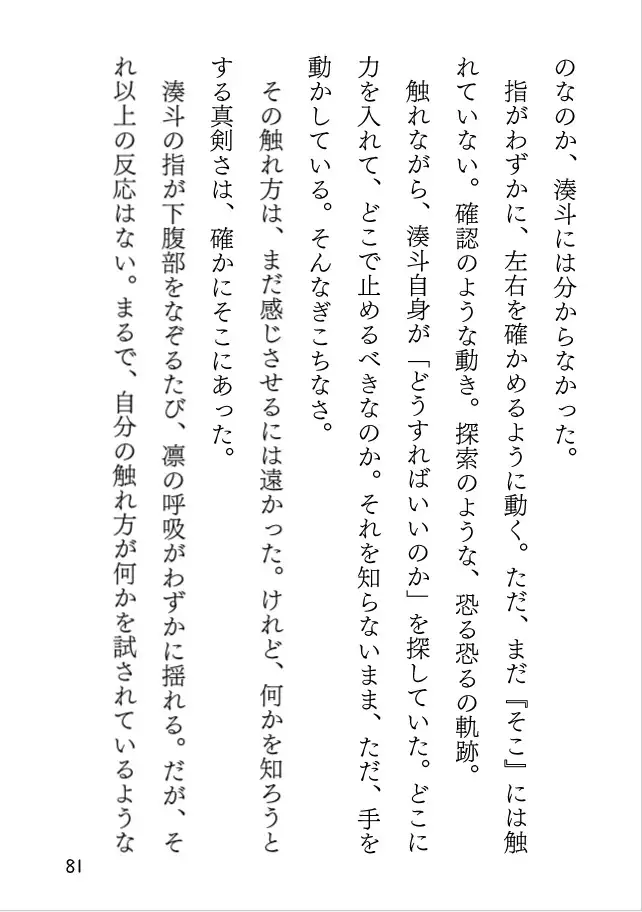 のなのか、湊斗には分からなかった。
　指がわずかに、左右を確かめるように動く。ただ、まだ『そこ』には触
れていない。確認のような動き。探索のような、恐る恐るの軌跡。
　触れながら、湊斗自身が「どうすればいいのか」を探していた。どこに
力を入れて、どこで止めるべきなのか。それを知らないまま、ただ、手を
動かしている。そんなぎこちなさ。
　その触れ方は、まだ感じさせるには遠かった。けれど、何かを知ろうと
する真剣さは、確かにそこにあった。
　湊斗の指が下腹部をなぞるたび、凛の呼吸がわずかに揺れる。だが、そ
れ以上の反応はない。まるで、自分の触れ方が何かを試されているような
81